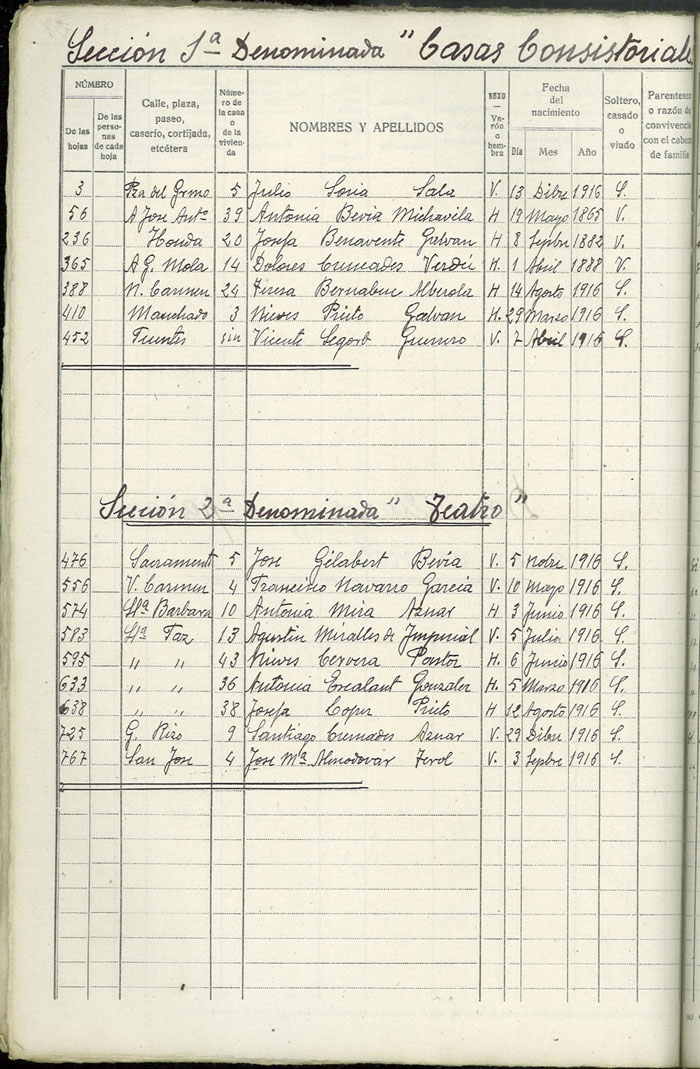 Sección 1ª Denominada "Casas Consistorial
NÚMERO
De las hojas
De las personas de cada hoja
Calle, plaza, paseo, caserío, cortijada, etcétera
Número de la casa o de la vivienda
NOMBRES Y APELLIDOS
SEXO — Varón o hembra
Fecha del nacimiento
Día Mes Año
Soltero, casado o viudo
Parentesco o razón de convivencia con el cabeza de familia
3 Pza del 5 Julio Soria Sala V. 13 Dibre 1916 S.
56 A Jose Antº 39 Antonia Bevia Michavila H 19 Mayo 1865 V.
236 Honda 20 Josefa Benavente Galvan H 8 Sepbre 1882 V.
365 A G. Mola 14 Dolores Cremades Verdú H. 1 Abril 1888 V.
388 V. Carmen 24 Teresa Bernabeu Alberola H 14 Agosto 1916 S.
410 Manchado 3 Nieves Prieto Galvan H. 29 Marzo 1916 S.
452 Fuentes sin Vicente Segorb Guerrero V. 7 Abril 1916 S.
Sección 2ª Denominada "Teatro"
476 Sacrament 5 Jose Gilabert Bevia V. 5 Nobre 1916 S.
556 V. Carmen 4 Francisco Navarro Garcia V. 10 Mayo 1916 S.
574 Stª Barbara 10 Antonia Mira Aznar H 3 Junio 1916 S.
583 Stª Faz 13 Agustin Miralles de Imperial V. 5 Julio 1916 S.
595 " " 43 Nieves Cervera Pastor H. 6 Junio 1916 S.
633 " " 36 Antonia Escalant Gonzalez H. 5 Marzo 1916 S.
638 " " 38 Josefa Lopez Prieto H 12 Agosto 1916 S.
725 G. Rizo 9 Santiago Cremades Aznar V. 29 Dibre 1916 S.
767 San Jose 4 Jose Mª Almodovar Ferol V. 3 Sepbre 1916 S.